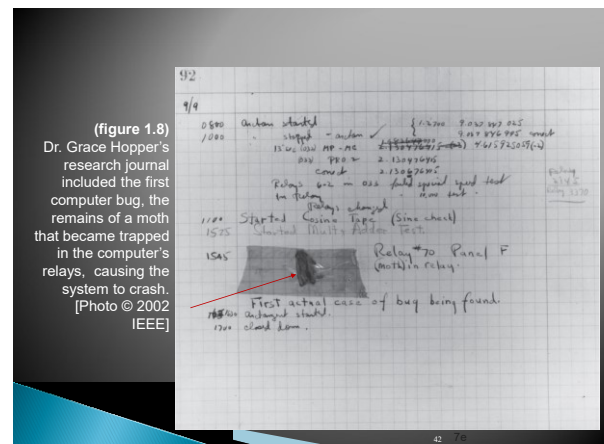 (figure 1.8)
Dr. Grace Hopper's
research journal
included the first
computer bug, the
remains of a moth
that became trapped
in the computer's
relays, causing the
system to crash.
[Photo © 2002
IEEE]
92
9/9
0800 antan started
1000 " stopped - antan ✓
13'uc (032) MP - MC
033 PRO 2 2.130476415
correct 2.130676415
Relays 6-2 in 033 failed special speed test
Relays changed
1100 Started Cosine Tape (Sine check)
1525 Started Multi Adder Test.
1545 Relay #70 Panel F
(moth) in relay.
First actual case of bug being found.
1630 antangent started.
1700 closed down.
42 7e